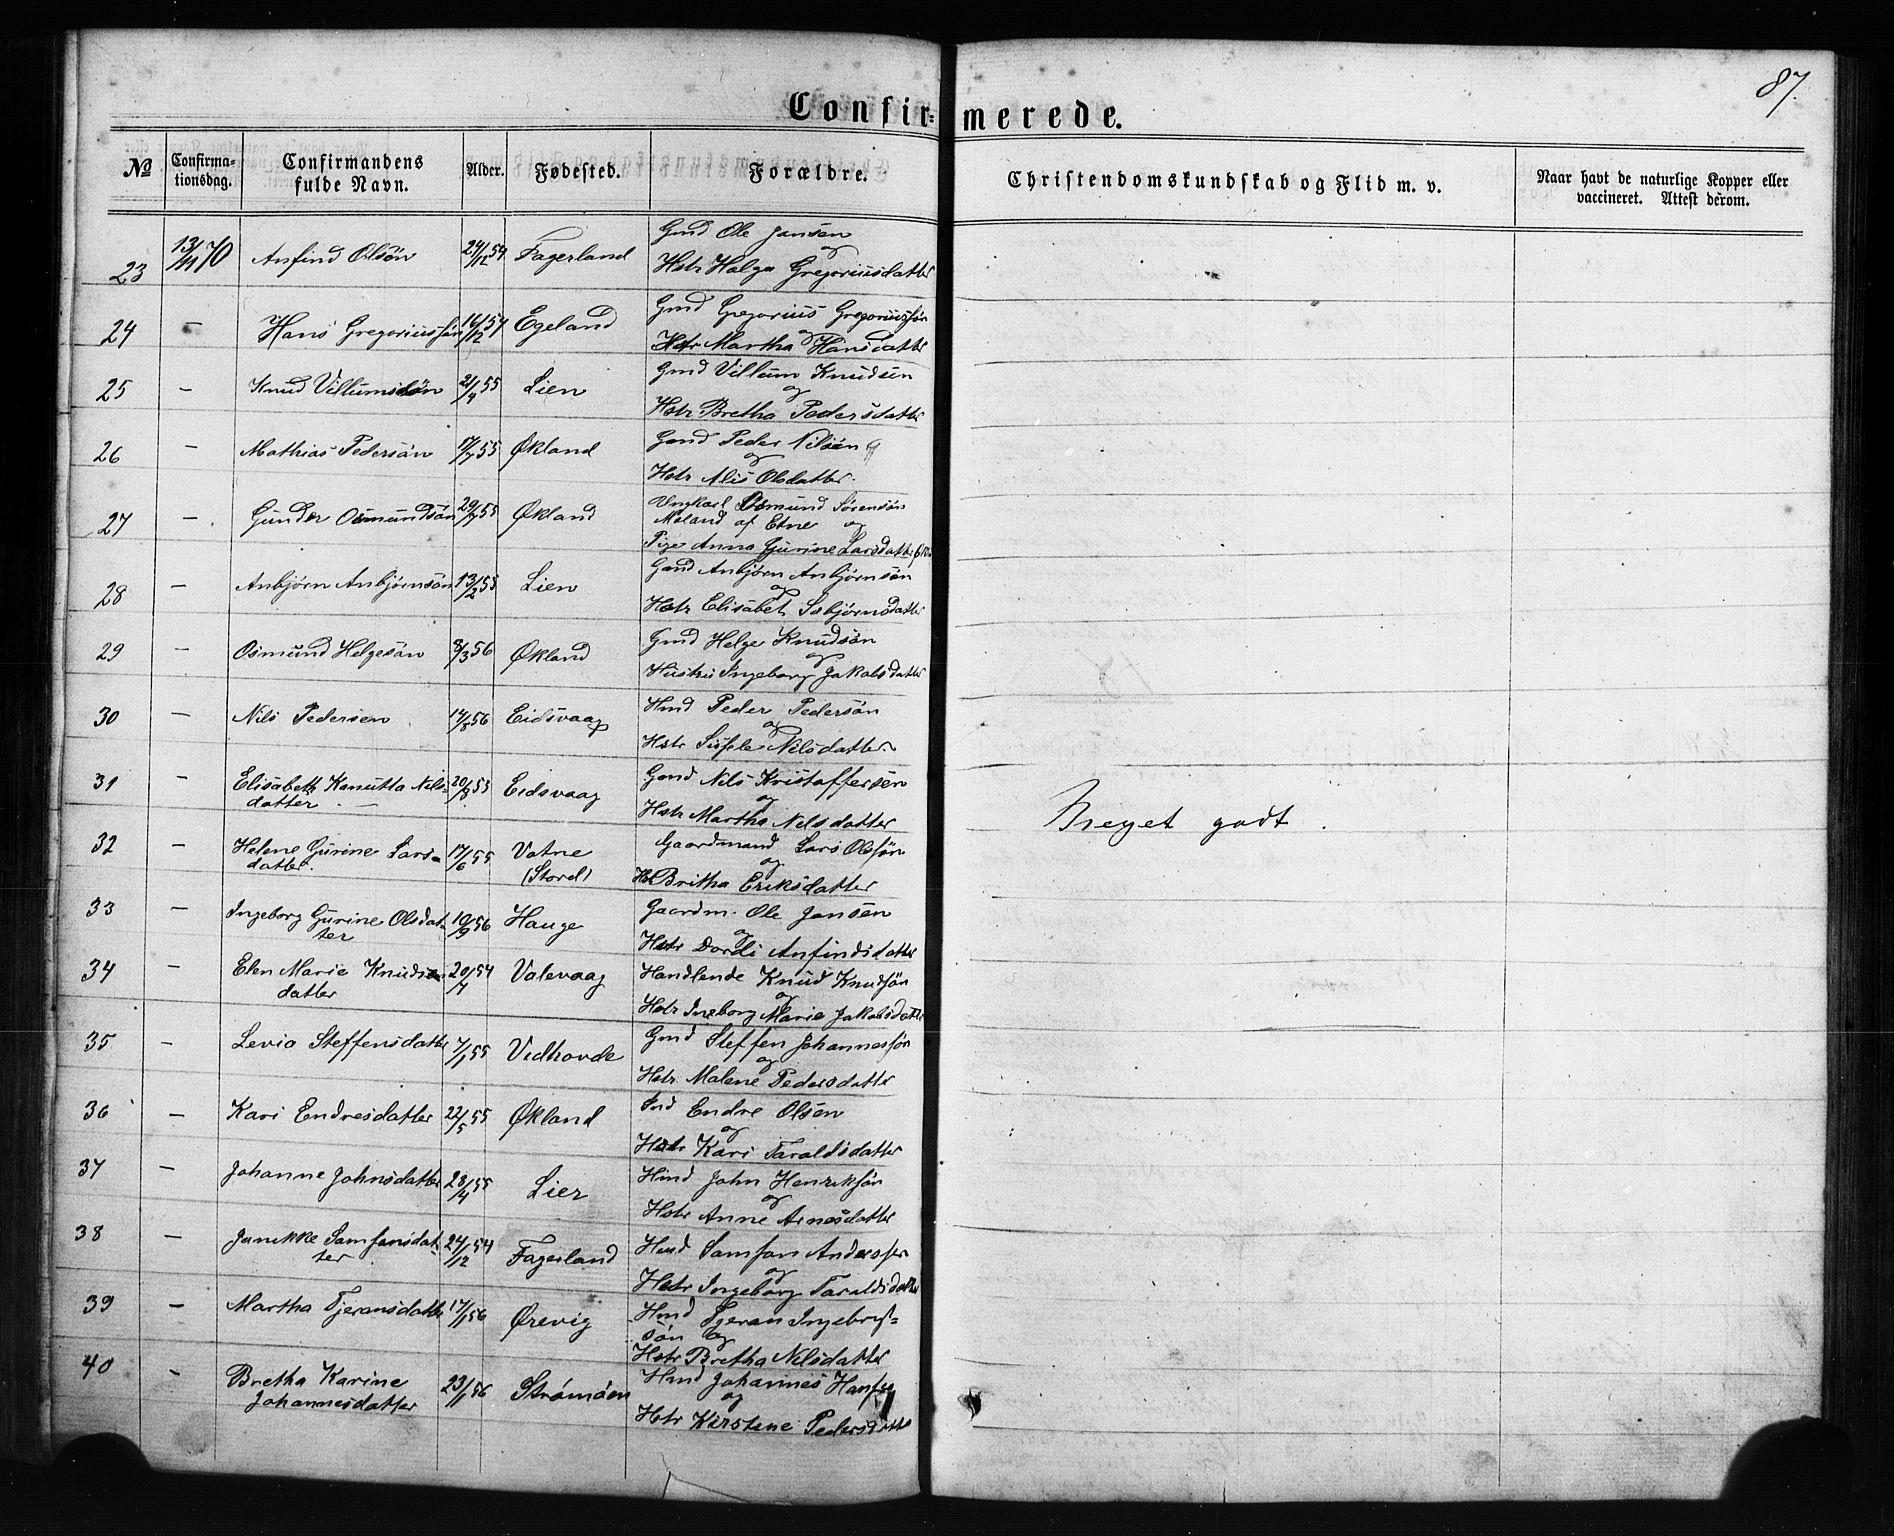 87.
Confir= merede.
No
Confirma-
tionsdag.
Confirmandens
fulde Navn.
Alder.
Fødested.
Forældre.
Christendomskundskab og Flid m. v.
Naar havt de naturlige Kopper eller
vaccineret. Attest derom.
23 13/11 70 Anfind Olsön 24/12 54 Fagerland Gmd Ole Jansen
og
Hstr Helga Gregoriusdatter
24 — Hans Gregoriussön 16/12 54 Egeland Gmd Gregorius Gregoriussön
og
Hstr Martha Hansdatter
25 — Knud Villumsdön 2/4 55 Lien Gmd Villum Knudsen
og
Hstr Bretha Pedersdatter
26 — Mathias Pedersön 17/7 55 Økland Gmd Peder Nilsen
og
Hstr Alis Olsdatter.
27 — Gunder Osmundsön 29/7 55 Økland Ungkarl Osmund Sörensön
Moland af Etne og
Pige Anna Gurine Larsdatter
28 — Anbjørn Anbjørnsön 13/2 55 Lien Gmd Anbjørn Anbjørnsön
og
Hstr Elisabet Sæbjørnsdatter
29 — Osmund Helgesön 8/3 56 Økland Gmd Helge Knudsön
og
Hustru Ingeborg Jakobsdatter
30 — Nils Pedersen 14/8 56 Eidsvaag Hmd Peder Pedersön
og
Hstr Sissele Nilsdatter.
31 — Elisabeth Kanutta Nils- 20/8 55 Eidsvaag Gmd Nils Kristoffersen
datter og
Hstr Martha Nilsdatter
Meget godt.
32 — Helene Gurine Lars- 17/6 55 Vatne Gaardmand Lars Olssön
datter. (Stord) og
Hst Britha Eriksdatter
33 — Ingeborg Gurine Olsdat- 10/9 56 Hauge Gaardm. Ole Jansen
ter og
Hstr Dordi Anfindsdatter
34 — Elen Marie Knuds 20/7 54 Valevaag Handlende Knud Knudsön
datter og
Hstr Ingeborg Marie Jakobsdatter
35 — Levia Steffensdatter 7/1 55 Vedhovde Gmd Steffen Johannessön
og
Hstr Malene Pedersdatter
36 — Kari Endresdatter 22/5 55 Økland Endre Olsen
og
Hstr Kari Taraldsdatter
37 — Johanne Johnsdatter 28/4 55 Lier Hmd John Henriksön
og
Hstr Anne Arnesdatter
38 — Janikke Samsonsdat- 24/12 54 Fagerland Hmd Samson Anderssen
ter og
Hstr Ingeborg Taraldsdatter
39 — Martha Tjeransdatter 17/1 56 Ørevig Hmd Tjeran Ingebrigt=
sön og
Hstr Bretha Nilsdatter
40 — Bretha Karine 23/1 56 Strømöen Hmd Johannes Hansen
Johannesdatter og
Hstr Kirstine Pedersdatter